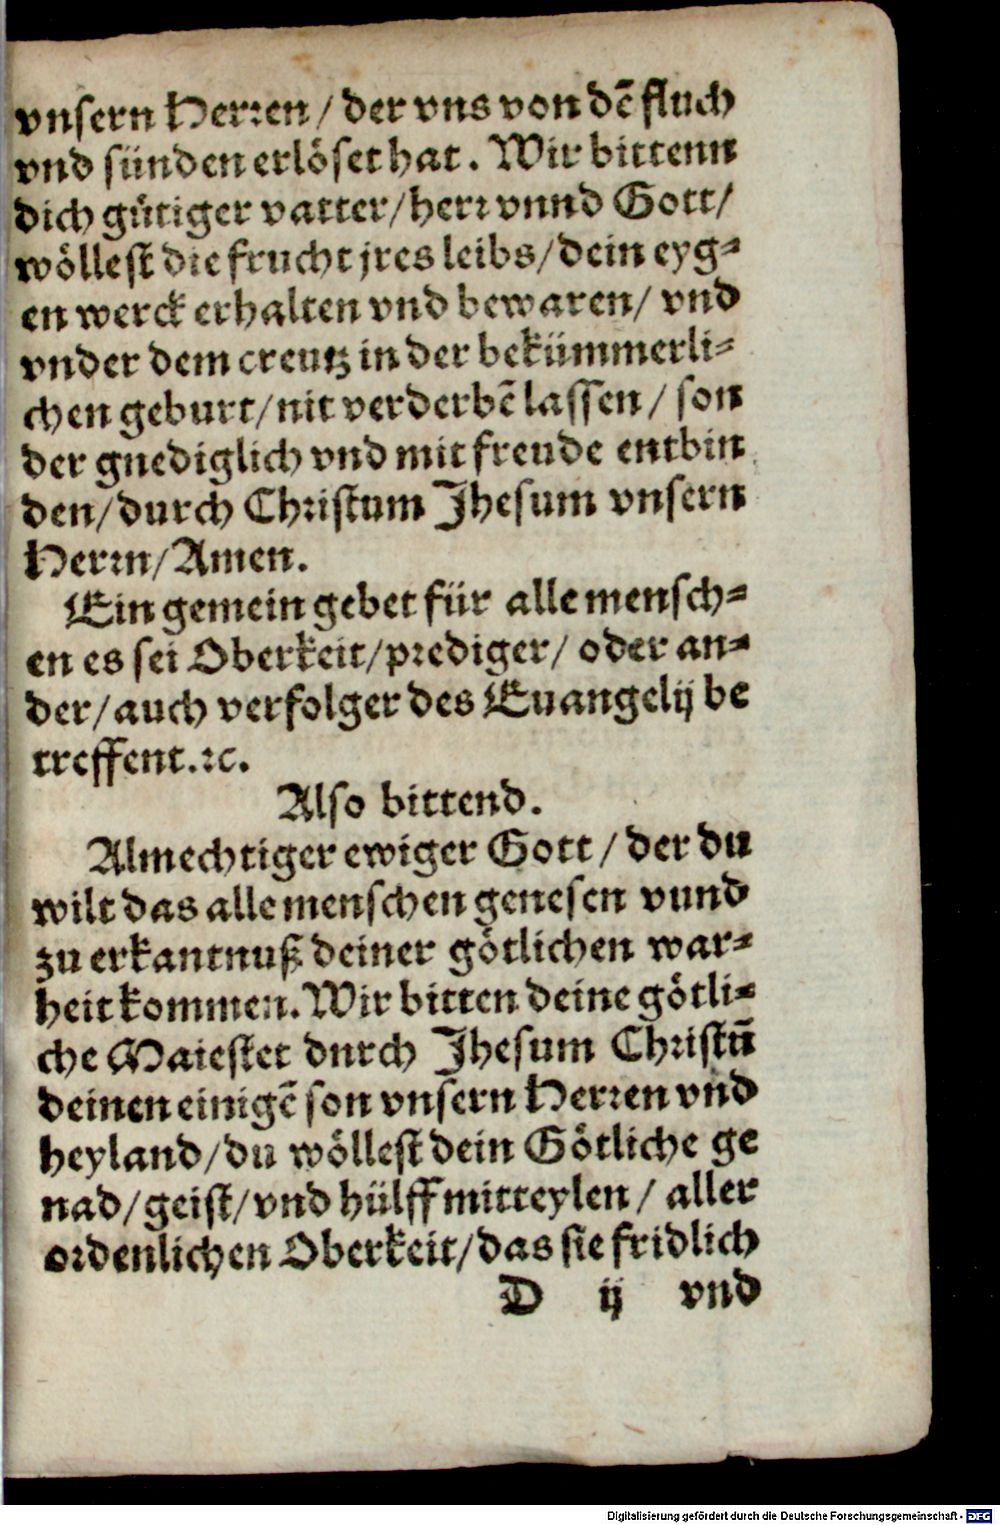 vnsern Herꝛen / der vns von dē fluch
vnd sünden erlöset hat. Wir bittenn
dich gütiger vatter/herꝛ vnnd Gott/
wöllest die frucht jres leibs/dein eyg⸗
en werck erhalten vnd bewaren/ vnd
vnder dem creutz in der bekümmerli⸗
chen geburt/nit verderbē lassen / son
der gnediglich vnd mit freude entbin
den/durch Chꝛistum Jhesum vnsern
Herꝛn/Amen.
Ein gemein gebet für alle mensch⸗
en es sei Oberkeit/pꝛediger/ oder an⸗
der/auch verfolger des Euangelij be
treffent.ꝛc.
Also bittend.
Almechtiger ewiger Gott / der du
wilt das alle menschen genesen vund
zu erkantnuß deiner götlichen war⸗
heit kommen. Wir bitten deine götli⸗
che Maiestet durch Jhesum Chꝛistū
deinen einigē son vnsern Herꝛen vnd
heyland/du wöllest dein Götliche ge
nad/geist/vnd hülff mitteylen/ aller
oꝛdenlichen Oberkeit/das sie fridlich
D ij vnd
Digitalisierung gefördert durch die Deutsche Forschungsgemeinschaft - DFG